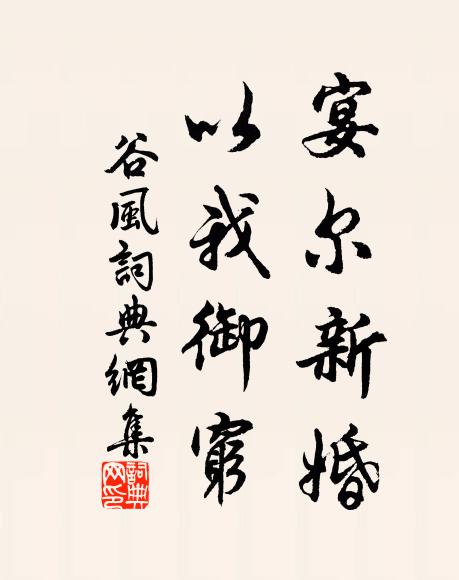 宴尔新婚
以我御窮
谷風詞典網集
詞典网印